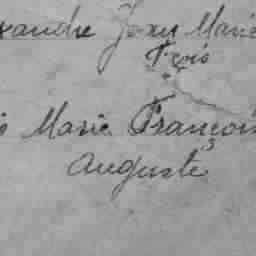 xandre Jean Marie
Fçois
is Marie François
Auguste